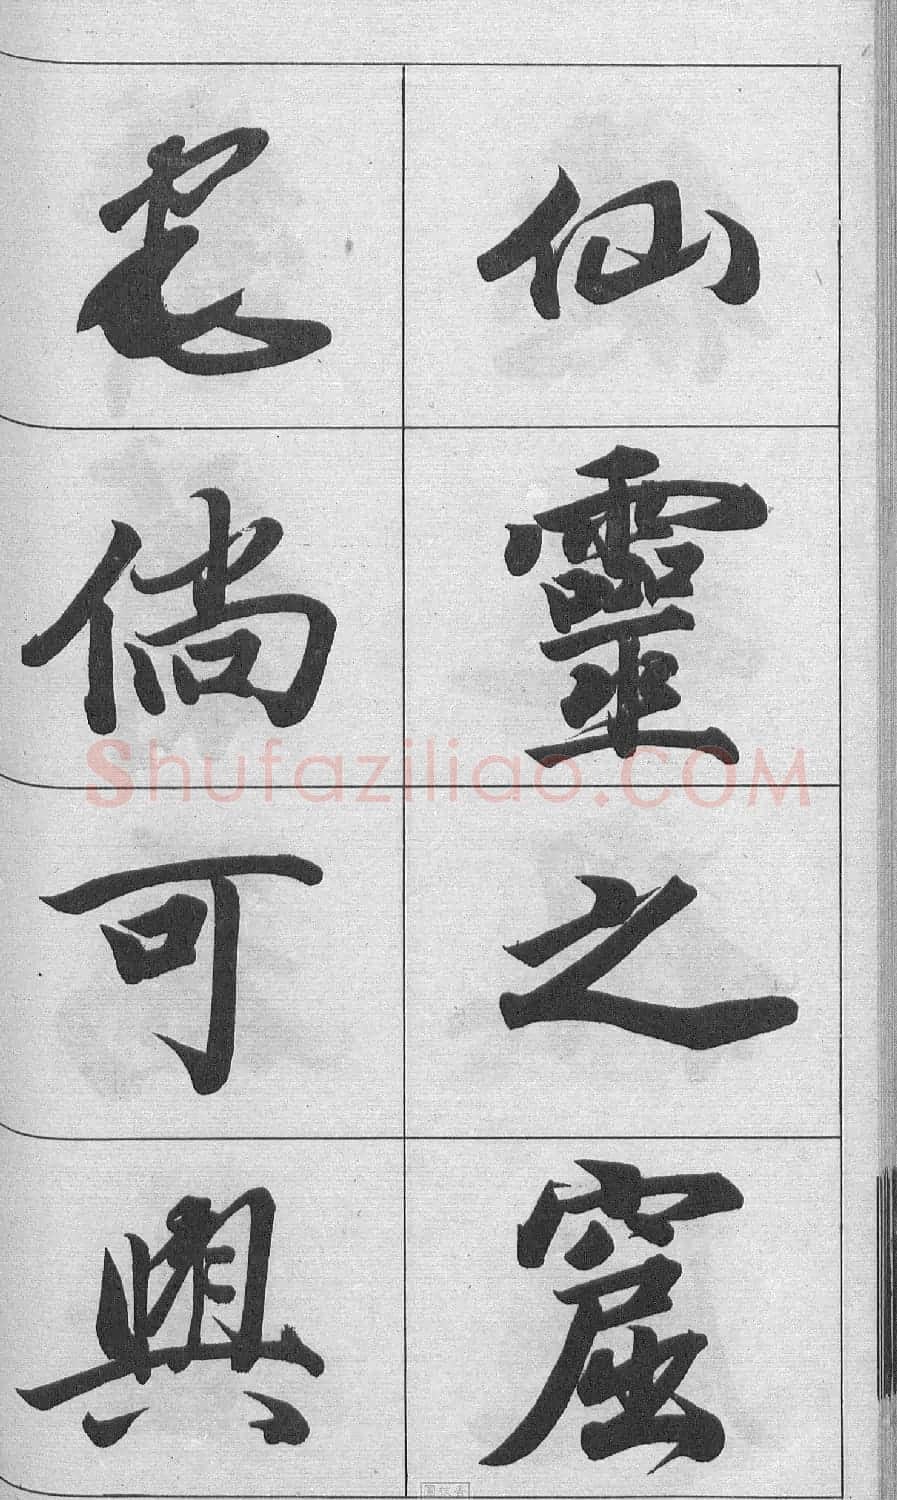 仙靈之窟
宅倘可興
Shufaziliao.COM